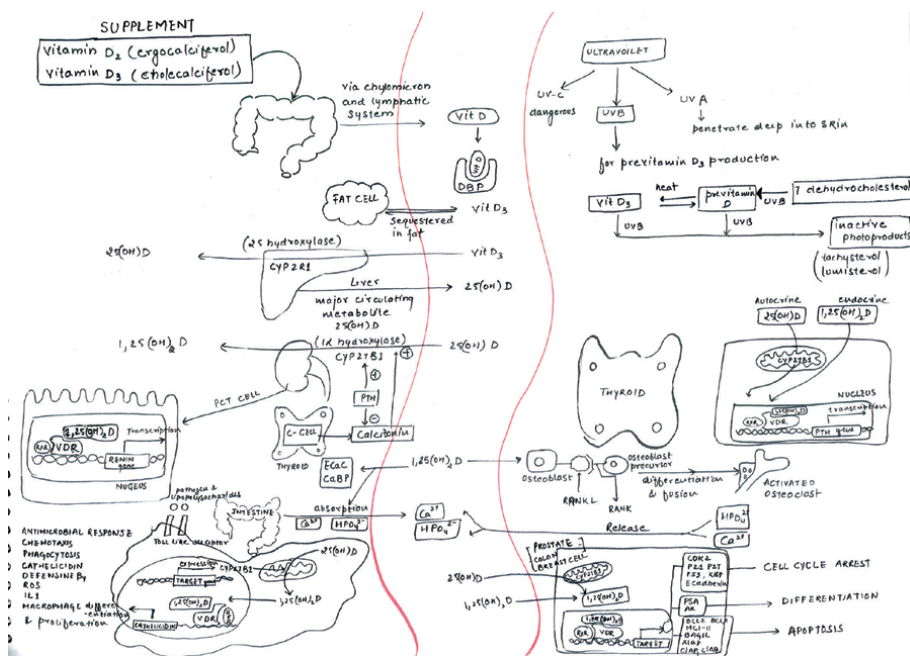 SUPPLEMENT
Vitamin D2 (ergocalciferol)
Vitamin D3 (cholecalciferol)
via chylomicron
and lymphatic
system
Vit D
DBP
FAT CELL
sequestered
in fat
Vit D3
25(OH)D
(25 hydroxylase)
CYP2R1
Vit D3
Liver
major circulating
metabolite
25(OH)D
25(OH)D
1,25(OH)2D
(1α hydroxylase)
CYP27B1
25(OH)D
PCT CELL
PTH
C-CELL
Calcitonin
THYROID
1,25(OH)2D
VDR
RXR
Transcription
RENIN
gene
NUCLEUS
ECaC
CaBP
1,25(OH)2D
absorption
Ca2+
HPO42-
INTESTINE
Ca2+
HPO42-
pathogen &
lipopolysaccharides
Toll like receptor
ANTIMICROBIAL RESPONSE
CHEMOTAXIS
PHAGOCYTOSIS
CATHELICIDIN
ROS
IL1
& proliferation
expression
TARGET
25(OH)D
1,25(OH)2D
1,25(OH)2D
VDR
CATHELICIDIN
ULTRAVOILET
UV-C
dangerous
UVB
UVA
penetrate deep into skin
for previtamin D3 production
Vit D3
heat
previtamin
D
UVB
7 dehydrocholesterol
UVB
UVB
inactive
photoproducts
(tachysterol
lumisterol)
Autocrine
25(OH)D
endocrine
1,25(OH)2D
CYP27B1
NUCLEUS
transcription
RXR
VDR
PTH gene
THYROID
Osteoblast
RANKL
RANK
Osteoblast
precursor
differentiation
& fusion
ACTIVATED
Osteoclast
Release
HPO42-
Ca2+
PROSTATE
COLON
BREAST CELL
25(OH)D
CYP27B1
1,25(OH)2D
1,25(OH)2D
RXR
VDR
TARGET
CDK2
P21 P27
P53, K67
Ecadherin
CELL CYCLE ARREST
PSA
AR
DIFFERENTIATION
APOPTOSIS